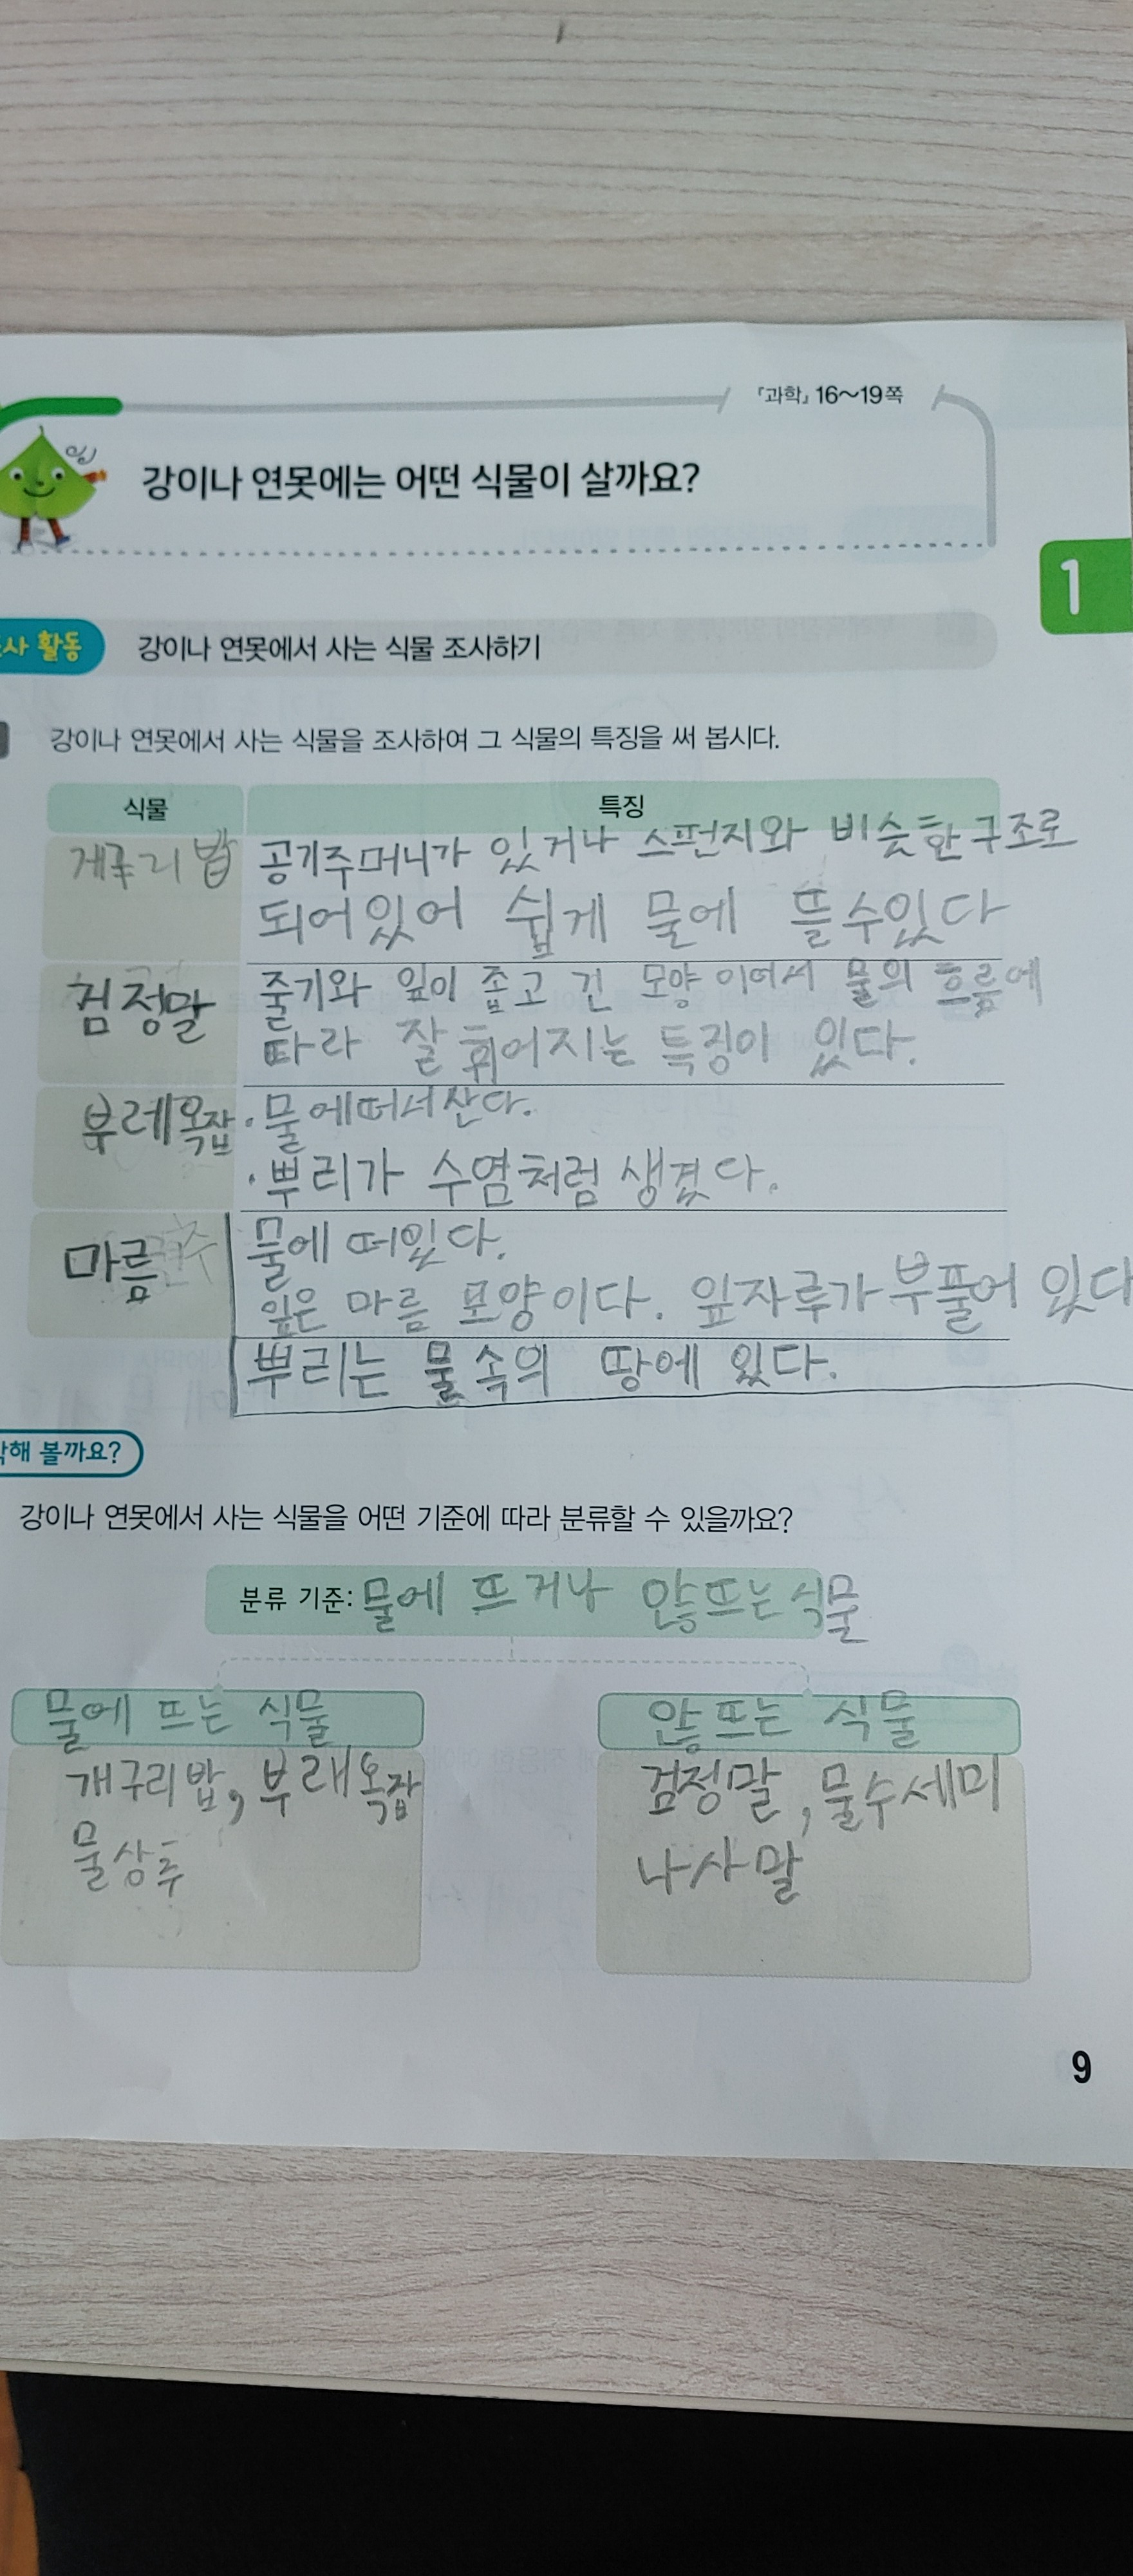 『과학』 16~19쪽
강이나 연못에는 어떤 식물이 살까요?
1
사 활동
강이나 연못에서 사는 식물 조사하기
강이나 연못에서 사는 식물을 조사하여 그 식물의 특징을 써 봅시다.
식물
특징
게구리밥
공기주머니가 있거나 스펀지와 비슷한 구조로
되어있어 쉽게 물에 뜰수있다
검정말
줄기와 잎이 좁고 긴 모양 이여서 물의 흐름에
따라 잘 휘어지는 특징이 있다.
부레옥잠
· 물에떠서산다.
· 뿌리가 수염처럼 생겼다.
마름
물에 떠있다.
잎은 마름 모양이다. 잎자루가 부풀어 있다
뿌리는 물속의 땅에 있다.
해 볼까요?
강이나 연못에서 사는 식물을 어떤 기준에 따라 분류할 수 있을까요?
분류 기준: 물에 뜨거나 않뜨는 식물
물에 뜨는 식물
개구리밥, 부래옥잠
물상추
않뜨는 식물
검정말, 물수세미
나사말
9